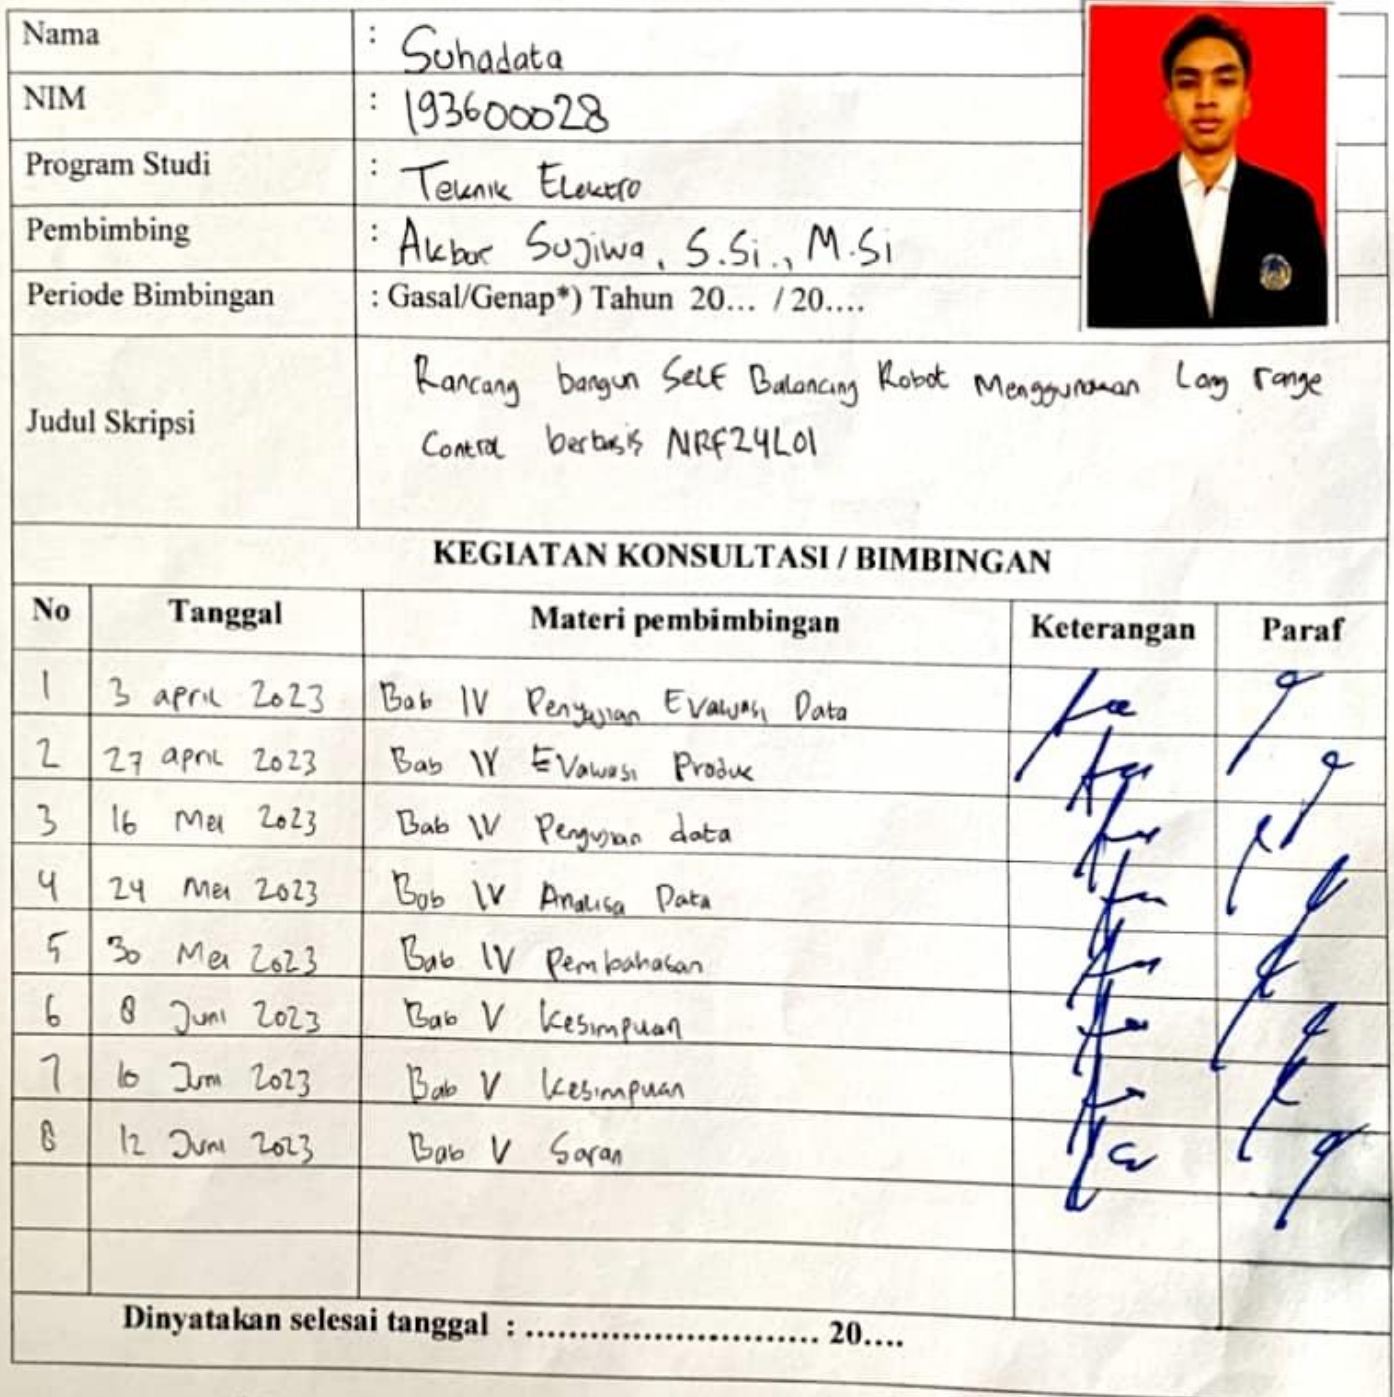 Nama : Suhadata
NIM : 193600028
Program Studi : Teknik Elektro
Pembimbing : Akbar Sujiwa, S.Si., M.Si
Periode Bimbingan : Gasal/Genap*) Tahun 20... / 20....
Judul Skripsi
Rancang bangun Self Balancing Robot Menggunakan Long range
Control berbasis NRF24L01
KEGIATAN KONSULTASI / BIMBINGAN
No Tanggal Materi pembimbingan Keterangan Paraf
1 3 april 2023 Bab IV Penyajian Evaluasi Data
2 27 april 2023 Bab IV Evaluasi Produk
3 16 Mei 2023 Bab IV Pengujian data
4 24 Mei 2023 Bab IV Analisa Data
5 30 Mei 2023 Bab IV Pembahasan
6 8 Juni 2023 Bab V Kesimpulan
7 10 Juni 2023 Bab V Kesimpulan
8 12 Juni 2023 Bab V Saran
Dinyatakan selesai tanggal : ........................... 20....